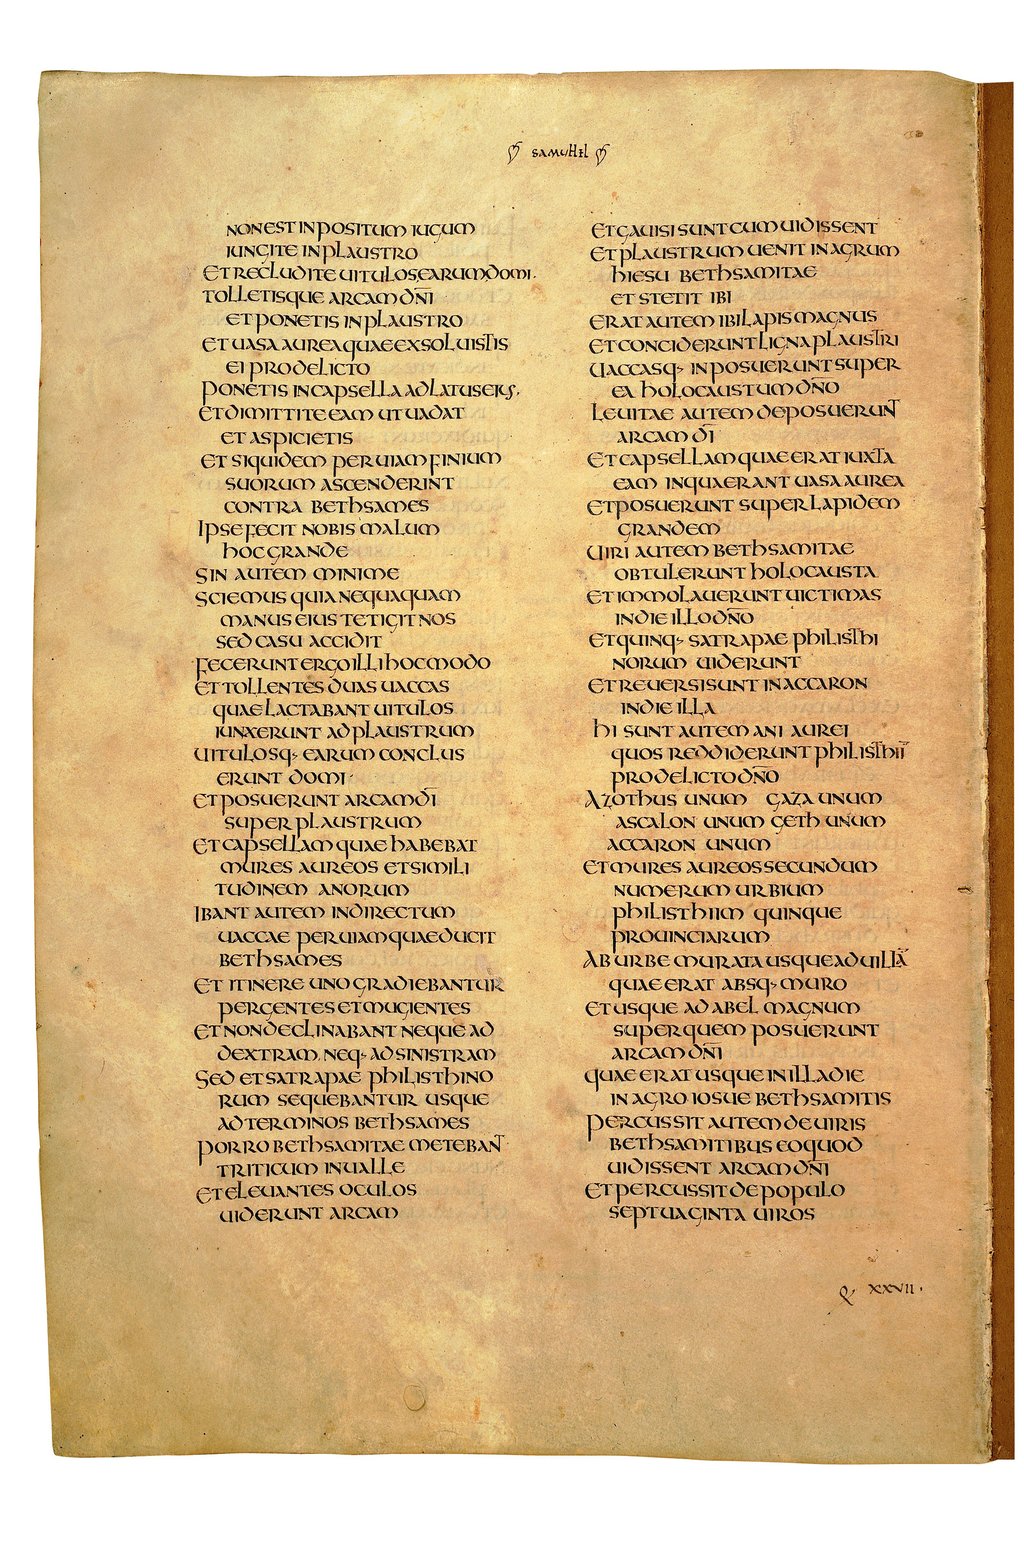 SAMUHEL
NON EST INPOSITUM IUGUM
IUNGITE IN PLAUSTRO
ET RECLUDITE UITULOS EARUM DOMI.
TOLLETISQUE ARCAM DN̄I
ET PONETIS IN PLAUSTRO
ET UASA AUREA QUAE EXSOLUISTIS
EI PRO DELICTO
PONETIS IN CAPSELLA AD LATUS EIUS.
ET DIMITTITE EAM UT UADAT
ET ASPICIETIS
ET SIQUIDEM PER UIAM FINIUM
SUORUM ASCENDERINT
CONTRA BETHSAMES
IPSE FECIT NOBIS MALUM
HOC GRANDE
SIN AUTEM MINIME
SCIEMUS QUIA NEQUAQUAM
MANUS EIUS TETIGIT NOS
SED CASU ACCIDIT
FECERUNT ERGO ILLI HOC MODO
ET TOLLENTES DUAS UACCAS
QUAE LACTABANT UITULOS
IUNXERUNT AD PLAUSTRUM
UITULOSQ· EARUM CONCLUS
ERUNT DOMI
ET POSUERUNT ARCAM DĪ
SUPER PLAUSTRUM
ET CAPSELLAM QUAE HABEBAT
MURES AUREOS ET SIMILI
TUDINEM ANORUM
IBANT AUTEM IN DIRECTUM
UACCAE PER UIAM QUAE DUCIT
BETHSAMES
ET ITINERE UNO GRADIEBANTUR
PERGENTES ET MUGIENTES
ET NON DECLINABANT NEQUE AD
DEXTRAM, NEQ· AD SINISTRAM
SED ET SATRAPAE PHILISTHINO
RUM SEQUEBANTUR USQUE
AD TERMINOS BETHSAMES
PORRO BETHSAMITAE METEBANT
TRITICUM IN UALLE
ET ELEUANTES OCULOS
UIDERUNT ARCAM
ET GAUISI SUNT CUM UIDISSENT
ET PLAUSTRUM UENIT IN AGRUM
HIESU BETHSAMITAE
ET STETIT IBI
ERAT AUTEM IBI LAPIS MAGNUS
ET CONCIDERUNT LIGNA PLAUSTRI
UACCASQ· INPOSUERUNT SUPER
EA HOLOCAUSTUM DN̄O
LEUITAE AUTEM DEPOSUERUNT
ARCAM DĪ
ET CAPSELLAM QUAE ERAT IUXTA
EAM IN QUA ERANT UASA AUREA
ET POSUERUNT SUPER LAPIDEM
GRANDEM
UIRI AUTEM BETHSAMITAE
OBTULERUNT HOLOCAUSTA
ET IMMOLAUERUNT UICTIMAS
IN DIE ILLO DN̄O
ET QUINQ· SATRAPAE PHILISTHI
NORUM UIDERUNT
ET REUERSI SUNT IN ACCARON
IN DIE ILLA
HI SUNT AUTEM ANI AUREI
QUOS REDDIDERUNT PHILISTHII
PRO DELICTO DN̄O
AZOTHUS UNUM GAZA UNUM
ASCALON UNUM GETH UNUM
ACCARON UNUM
ET MURES AUREOS SECUNDUM
NUMERUM URBIUM
PHILISTHIIM QUINQUE
PROUINCIARUM
AB URBE MURATA USQUE AD UILLĀ
QUAE ERAT ABSQ· MURO
ET USQUE AD ABEL MAGNUM
SUPER QUEM POSUERUNT
ARCAM DN̄I
QUAE ERAT USQUE IN ILLA DIE
IN AGRO IOSUE BETHSAMITIS
PERCUSSIT AUTEM DE UIRIS
BETHSAMITIBUS EO QUOD
UIDISSENT ARCAM DN̄I
ET PERCUSSIT DE POPULO
SEPTUAGINTA UIROS
Q· XXVII·